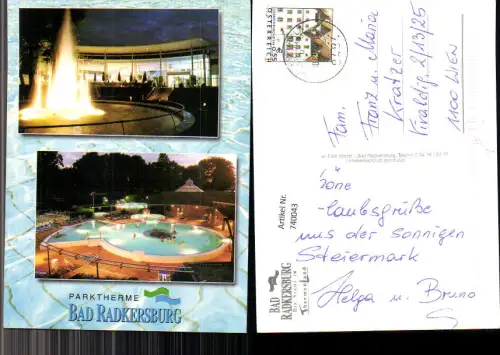 PARKTHERME
BAD RADKERSBURG
ÖSTERREICH
Fam.
Franz u. Maria
Kratzer
Vivaldig. 2/13/25
1100 WIEN
Artikel Nr.
740043
BAD
RADKERSBURG
Thermenland
-laubsgrüße
aus der sonnigen
Steiermark
Helga u. Bruno